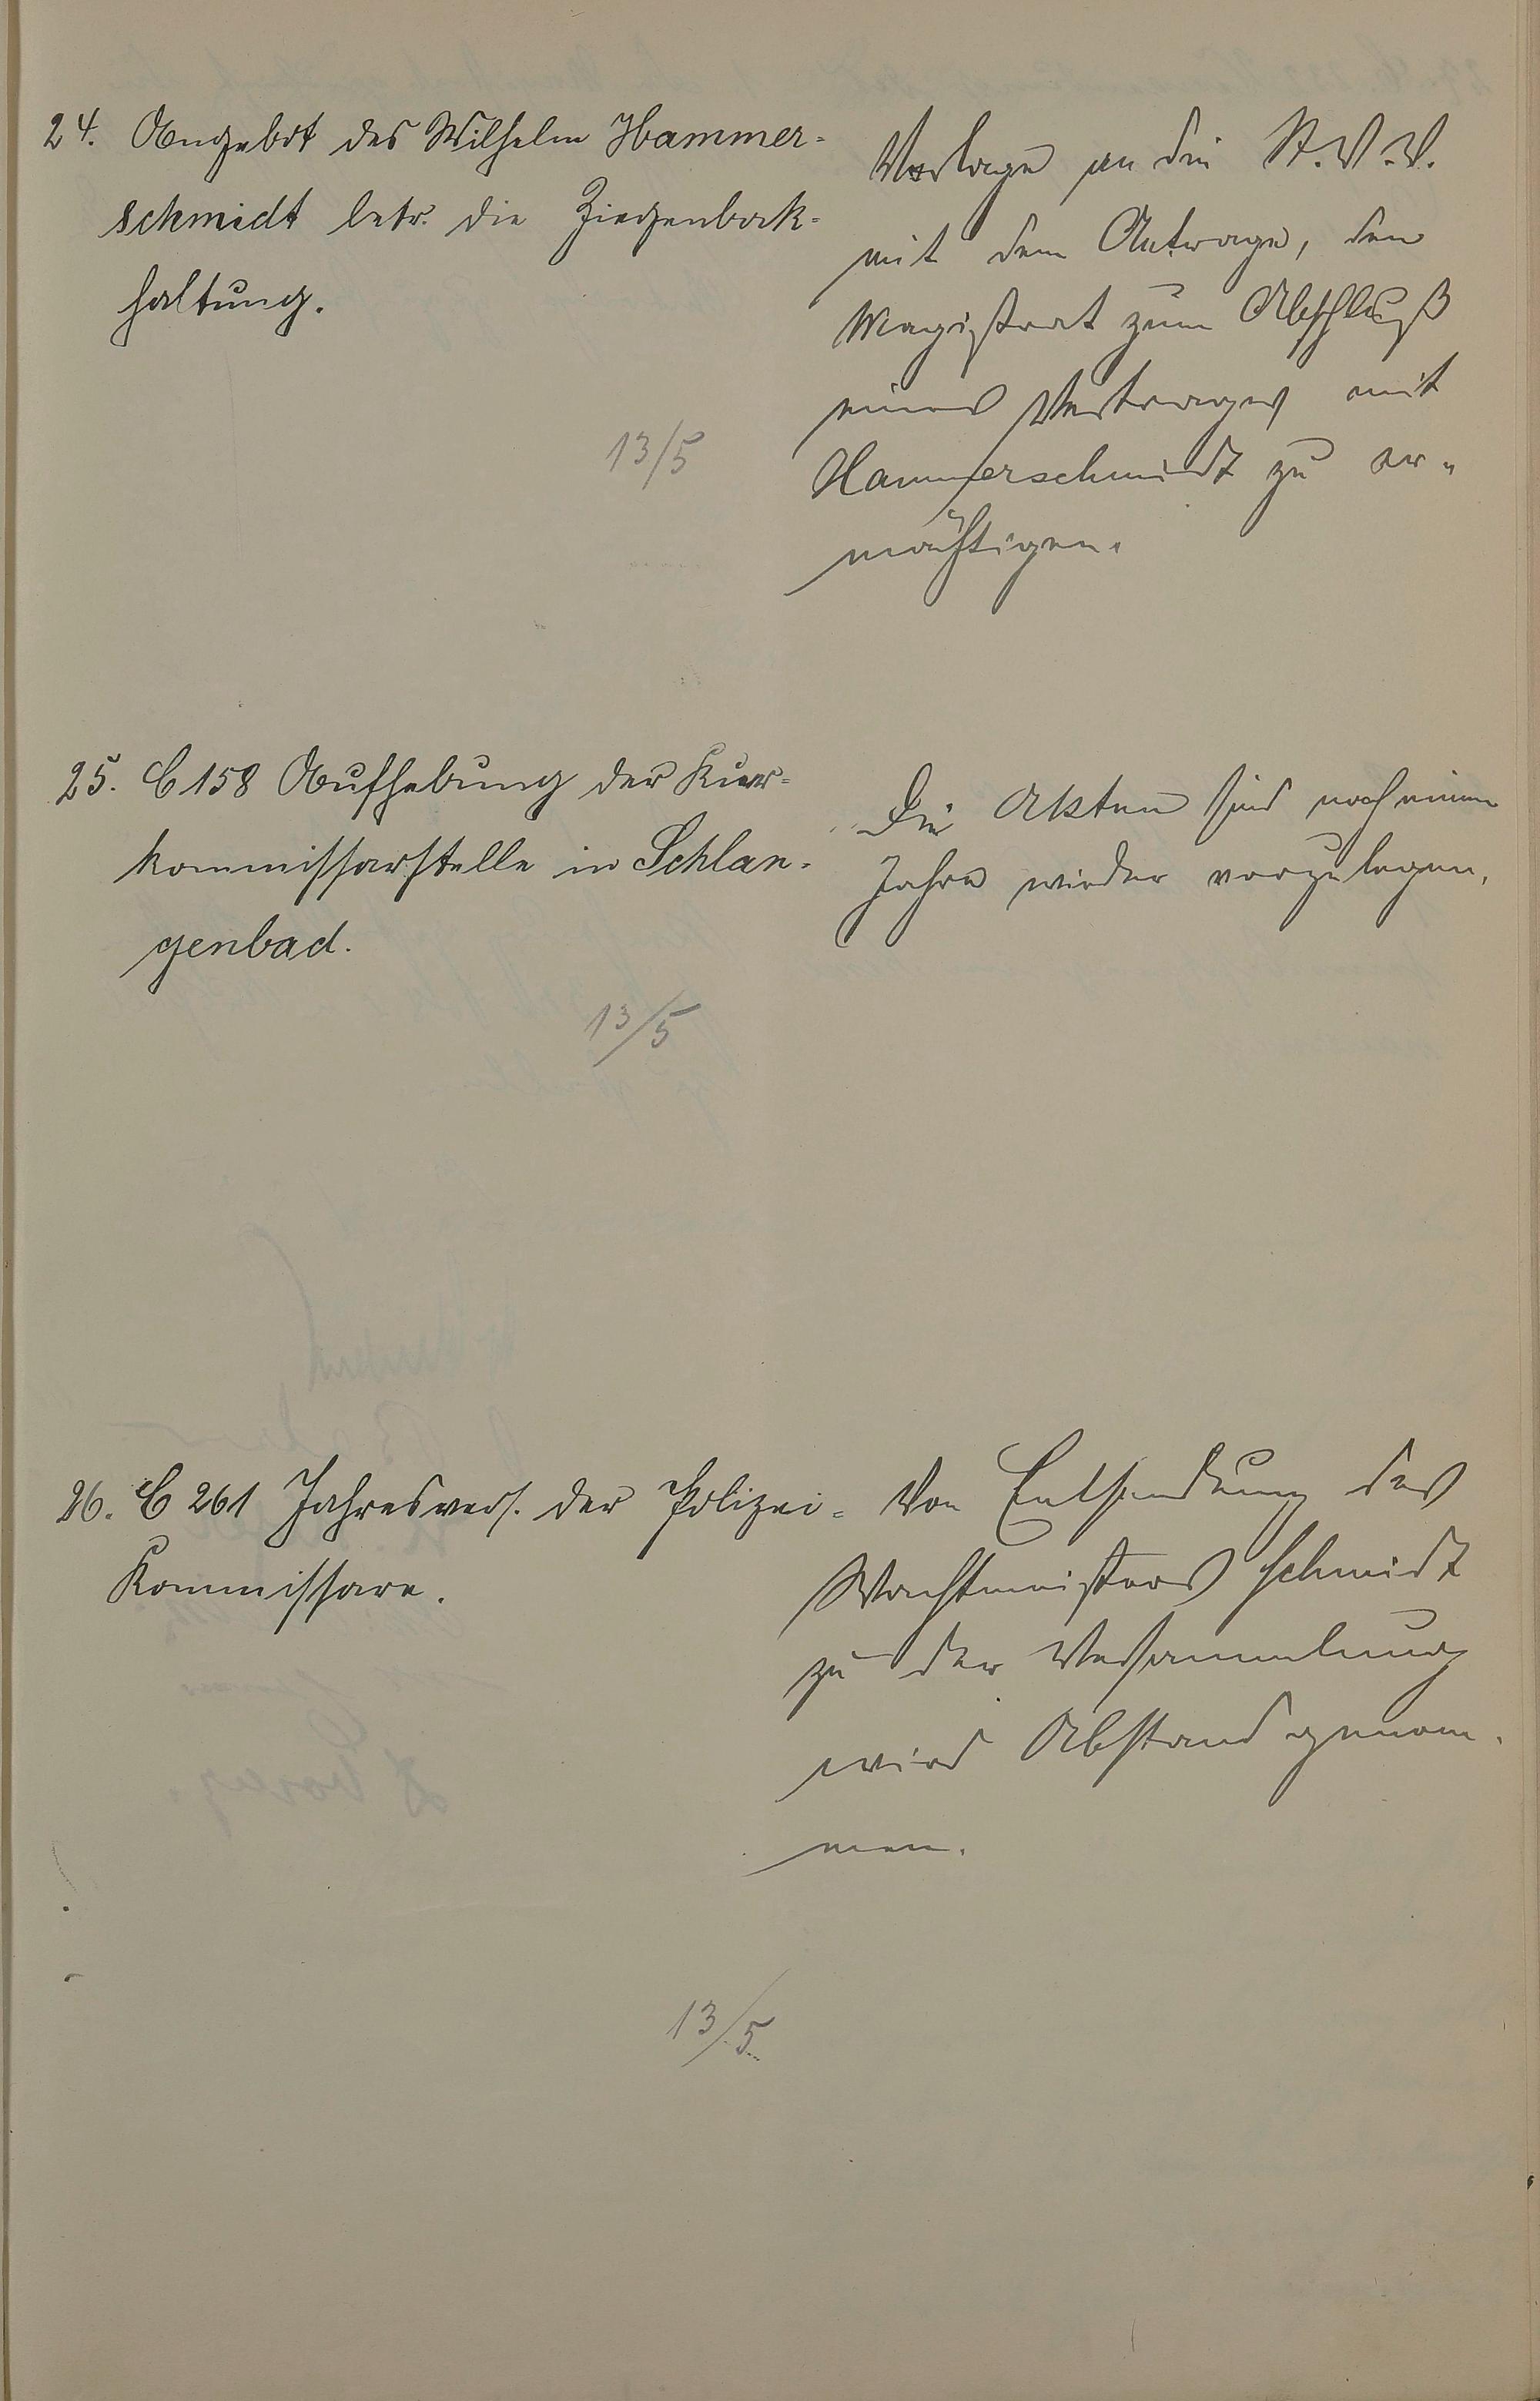 24. Angebot des Wilhelm Hammer-
schmidt betr. die Ziegenbock-
haltung.
13/5
Vorlage an die St.V.V.
mit dem Antrage, den
Magistrat zum Abschluß
eines Vertrages mit
Hammerschmidt zu er-
mächtigen.
25. C 158 Aufhebung der Kur-
kommissarstelle in Schlan-
genbad.
13/5
Die Akten sind nach einem
Jahre wieder vorzulegen.
26. C 261 Jahresvers. der Polizei-
Kommissare.
13/5
Von Entsendung des
Wachtmeisters Schmidt
zu der Versammlung
wird Abstand genom-
men.